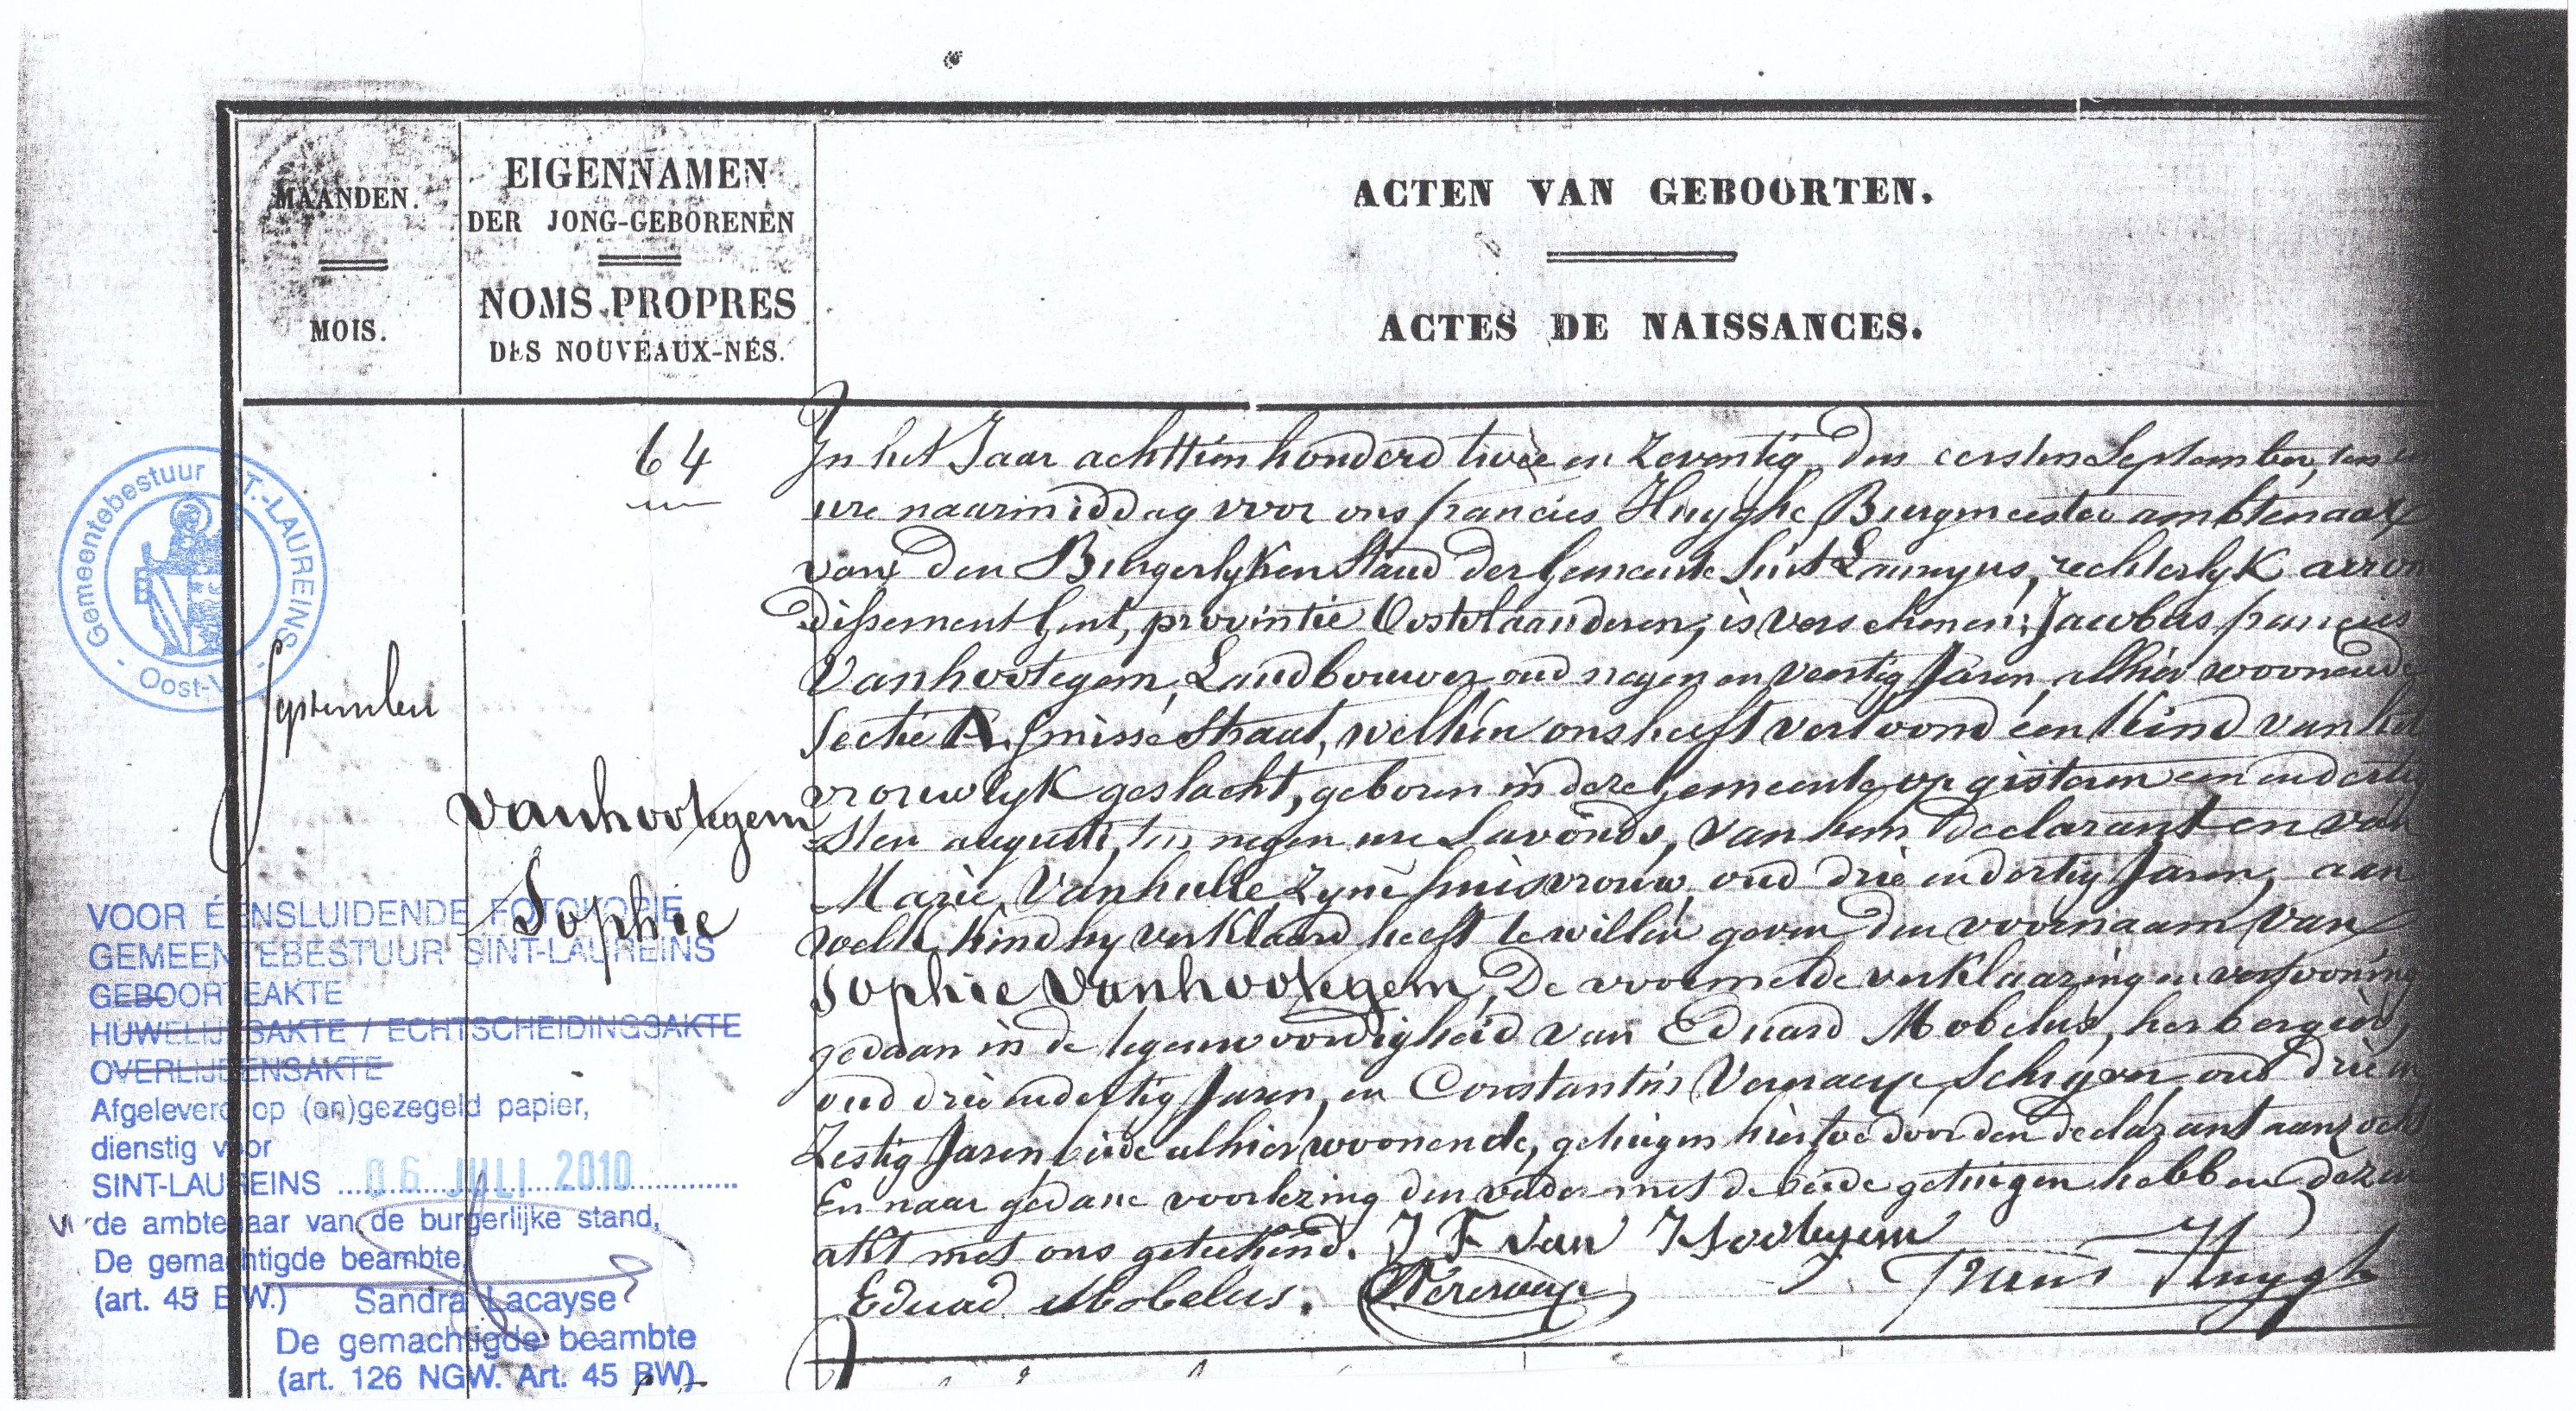 MAANDEN.
MOIS.
EIGENNAMEN
DER JONG-GEBORENEN
NOMS PROPRES
DES NOUVEAUX-NÉS.
ACTEN VAN GEBOORTEN.
ACTES DE NAISSANCES.
64
September
Vanhootegem
Sophie
In het Jaar achttien honderd twee en Zeventig, den eersten September, ten
ure naarmiddag voor ons francies Huyghe, Burgmeester ambtenaar
van den Burgerlyken Stand der Gemeente Sint Laureyns, rechterlyk arron
dissement Gent, provintie Oostvlaanderen, is verschenen: Jacobus francies
Vanhootegem, Landbouwer oud negen en veertig Jaren, alhier woonende
Sectie A. straat, welken ons heeft vertoond een kind van het
vrouwlyk geslacht, geboren in deze Gemeente op gisteren een en dertig
sten augusti, ten negen ure savonds, van hem declarant en van
Marie Vanhulle Zyne huisvrouw, oud drie en dertig Jaren, aan
welk kind hy verklaard heeft te willen geven den voornaam van
Sophie Vanhootegem, De voormelde verklaaring en vertooning
gedaan in de tegenwoordigheid van Eduard Mobelus, herbergier,
oud drie en dertig Jaren, en Constantin Schryver, oud drie en
Zestig Jaren, beide alhier woonende, getuigen hiertoe door den declarant aanzocht
En naar gedane voorlezing den vader met de beide getuigen hebben dezen
akt met ons geteekend. J F Van Hootegem
Eduad Mobelus. Huyghe
Gemeentebestuur ST.-LAUREINS - Oost-V
VOOR ÉENSLUIDENDE FOTOKOPIE
GEMEENTEBESTUUR SINT-LAUREINS
GEBOORTEAKTE
HUWELIJKSAKTE / ECHTSCHEIDINGSAKTE
OVERLIJDENSAKTE
Afgeleverd op (on)gezegeld papier,
dienstig voor
SINT-LAUREINS ... 06 JULI 2010 ...
de ambtenaar van de burgerlijke stand,
De gemachtigde beambte,
(art. 45 B.W.) Sandra Lacayse
De gemachtigde beambte
(art. 126 NGW. Art. 45 BW)